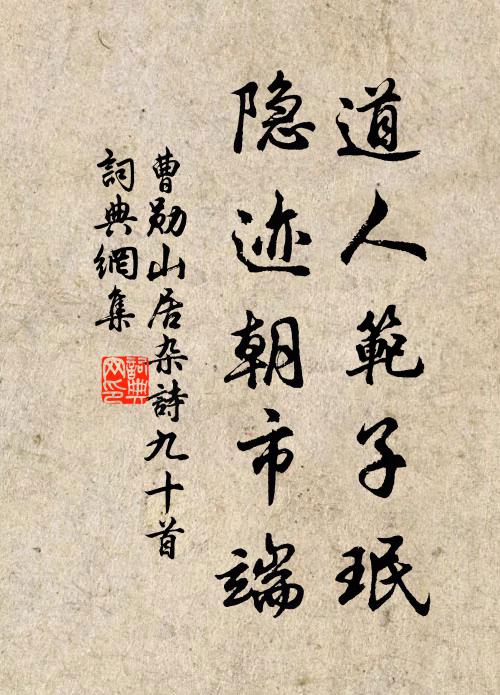 道人範子珉
隐迹朝市端
曹勋山居杂詩九十首
詞典網集
詞典
网印